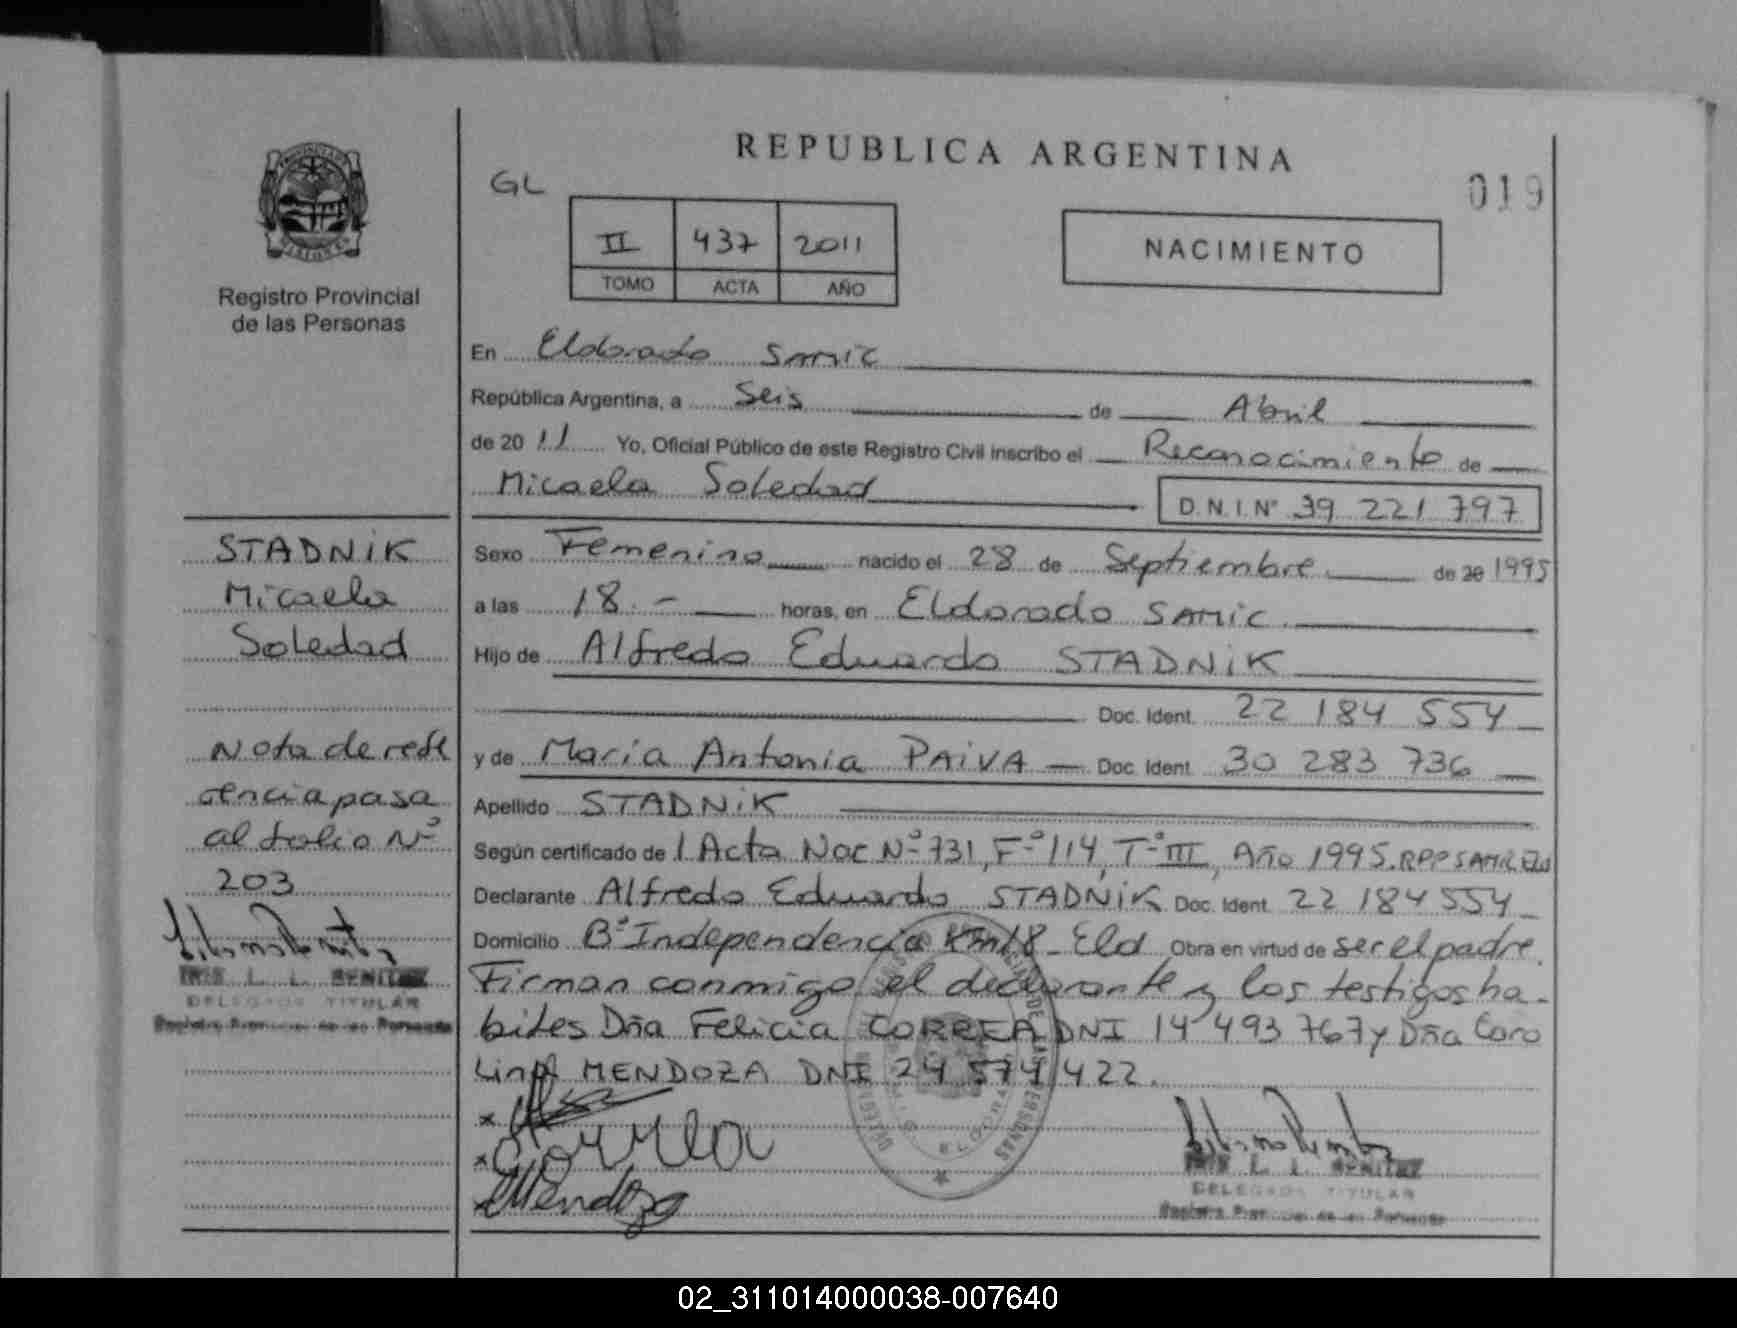 REPUBLICA ARGENTINA
019
GL
II 437 2011
TOMO ACTA AÑO
NACIMIENTO
Registro Provincial
de las Personas
En Eldorado SAMIC
República Argentina, a Seis de Abril
de 20 11 Yo, Oficial Público de este Registro Civil inscribo el Reconocimiento de
Micaela Soledad D.N.I.Nº 39 221 797
Sexo Femenino nacido el 28 de Septiembre de 20 1995
a las 18.- horas, en Eldorado SAMIC.
Hijo de Alfredo Eduardo STADNiK
Doc. Ident. 22 184 554
y de Maria Antonia PAiVA Doc. Ident. 30 283 736
Apellido STADNiK
Según certificado de 1 Acta Nac Nº 731, Fº 114, Tº III, Año 1995. RPP SAMIC Eld
Declarante Alfredo Eduardo STADNiK Doc. Ident. 22 184 554
Domicilio Bº Independencia Km18 - Eld Obra en virtud de ser el padre.
Firman conmigo el declarante y los testigos há-
biles Dña Felicia CORREA DNI 14 493 767 y Dña Caro
Lina MENDOZA DNI 24 574 422.
Mendoza
BENITEZ
DELEGADO TITULAR
Registro Provincial de las Personas
STADNiK
Micaela
Soledad
Nota de refe
rencia pasa
al folio Nº
203
BENITEZ
DELEGADO TITULAR
Registro Provincial de las Personas
02_311014000038-007640